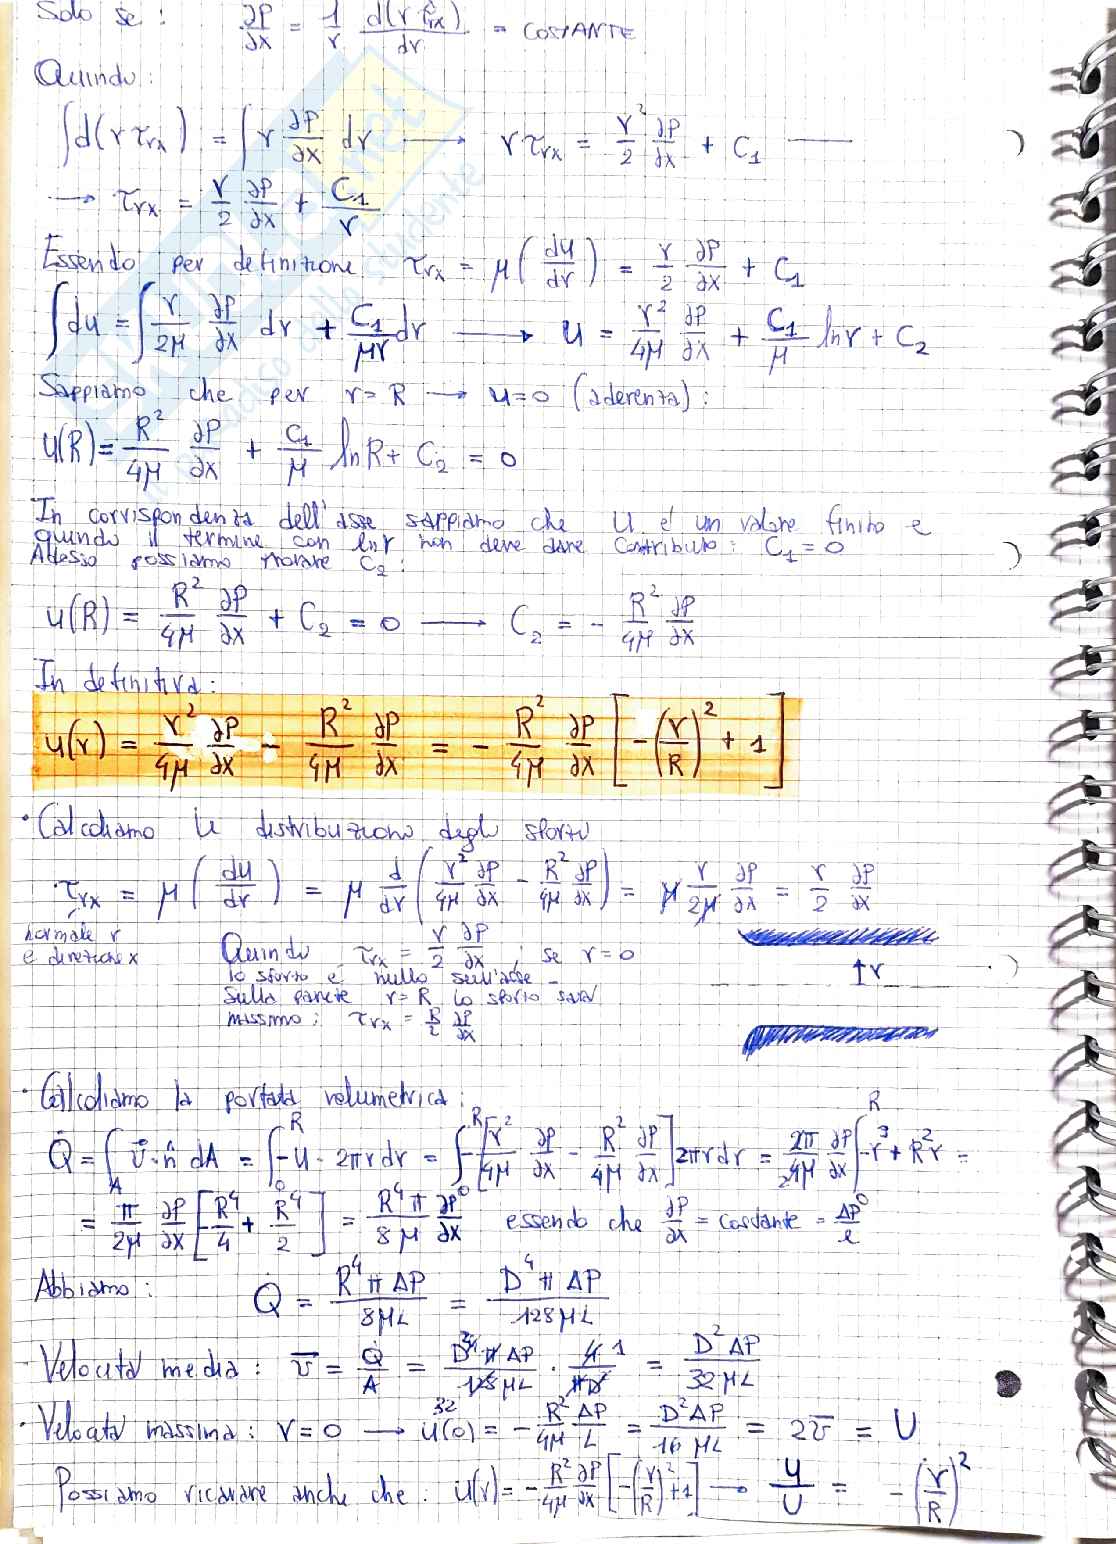 Solo se : ∂P/∂x = 1/r d(r τrx)/dr = COSTANTE
Quindi:
∫d(r τrx) = ∫r ∂P/∂x dr → r τrx = r²/2 ∂P/∂x + C1
→ τrx = r/2 ∂P/∂x + C1/r
Essendo per definizione τrx = μ(du/dr) = r/2 ∂P/∂x + C1
∫du = ∫r/2μ ∂P/∂x dr + C1/μr dr → u = r²/4μ ∂P/∂x + C1/μ lnr + C2
Sappiamo che per r=R → u=0 (aderenza):
u(R) = R²/4μ ∂P/∂x + C1/μ lnR + C2 = 0
In corrispondenza dell'asse sappiamo che U é un valore finito e
quindi il termine con lnr non deve dare contributo: C1=0
Adesso possiamo trovare C2:
u(R) = R²/4μ ∂P/∂x + C2 = 0 → C2 = - R²/4μ ∂P/∂x
In definitiva:
u(r) = r²/4μ ∂P/∂x - R²/4μ ∂P/∂x = - R²/4μ ∂P/∂x [-(r/R)² + 1]
• Calcoliamo la distribuzione degli sforzi
τrx = μ(du/dr) = μ d/dr (r²/4μ ∂P/∂x - R²/4μ ∂P/∂x) = μ r/2μ ∂P/∂x = r/2 ∂P/∂x
normale r
e direzione x
Quindi τrx = r/2 ∂P/∂x ; se r=0
lo sforzo é nullo sull'asse -
Sulla parete r=R lo sforzo sarà
massimo: τrx = R/2 ∂P/∂x
↑r
• Calcoliamo la portata volumetrica:
Q̇ = ∫A v̄·n̂ dA = ∫0^R -u · 2πr dr = ∫^R -[r²/4μ ∂P/∂x - R²/4μ ∂P/∂x] 2πr dr = 2π/4μ ∂P/∂x ∫^R -r³ + R²r =
= π/2μ ∂P/∂x [-R⁴/4 + R⁴/2] = R⁴π/8μ ∂P/∂x essendo che ∂P/∂x = costante = ΔP/L
Abbiamo: Q̇ = R⁴ π ΔP/8μL = D⁴ π ΔP/128μL
• Velocità media: v̄ = Q̇/A = D⁴ π ΔP/128μL · 4/πD² = D² ΔP/32μL
• Velocità massima: r=0 → u(0) = - R²/4μ ΔP/L = D²ΔP/16μL = 2v̄ = U
Possiamo ricavare anche che: u(r) = - R²/4μ ∂P/∂x [-(r/R)² + 1] → u/U = -(r/R)²